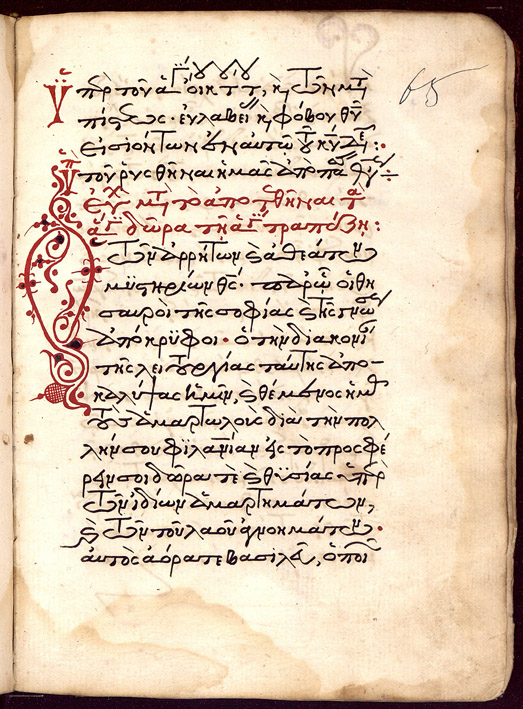 65
Ὑπὲρ τοῦ ἁγ οἴκ τ τ, κ τῶν μετὰ
πίστεως· εὐλαβεί κ φόβου θυ
εἰσιόντων ἐν αὐτῶ τοῦ κυ δε:·
Ὑπ τοῦ ρυσθῆναι ἡμᾶς ἀπὸ πάσ θλί÷
εὐχ μετ τὸ ἀποτεθῆναι τὰ
ἅγ δῶρα τῆ ἁγ τραπέζη:
Ὁ τῶν ἀρρήτων κ ἀθεάτων
μυστηρίων θς· παρῶ οἱ θη
σαυροὶ τῆς σοφίας κ τῆς γνώσ
ἀπόκρυφοι· ὁ τὴν διακονί
τῆς λειτουργίας ταύτης ἀπο-
καλύψας ἡμῖν, κ θέμενος ἡμ
τοὺς ἁμαρτωλοὺς διὰ τὴν πολ
λήν σου φιλανίαν εἰς τὸ προσφέ
ρειν σοι δῶρα τὲ κ θυσίας· ὑπὲρ
τῶν ἰδίων ἁμαρτημάτων,
κ τῶν τοῦ λαοῦ ἀγνοημάτων·
αὐτὸς ἀόρατε βασιλεῦ, ὁ ποι